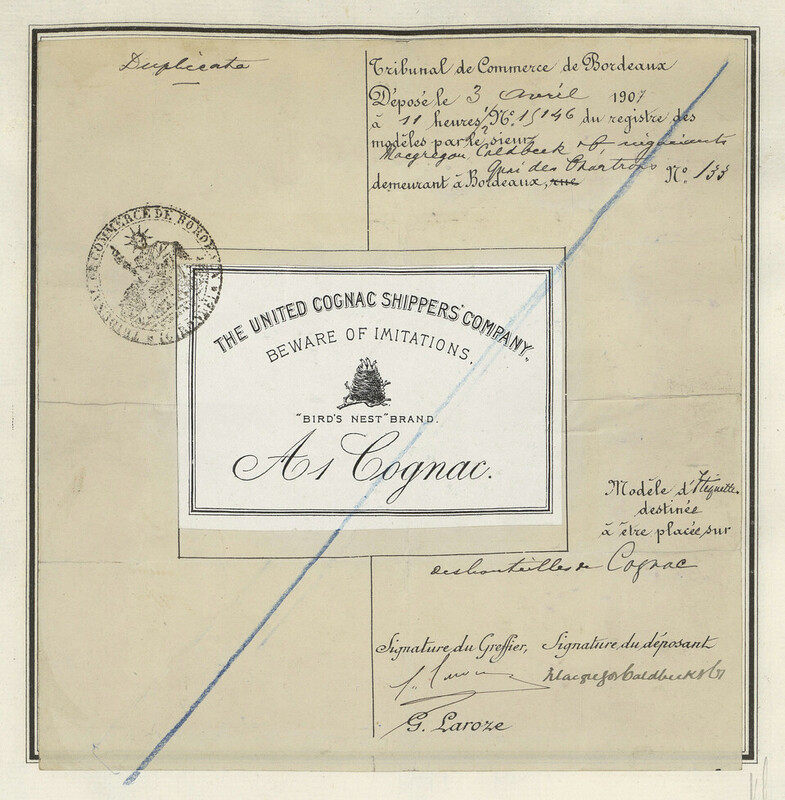 Duplicata
Tribunal de Commerce de Bordeaux
Déposé le 3 avril 1907
à 11 heures, No. 15146 du registre des
modèles par le sieur
Macgregor Caldbeck & négociants
Quai des Chartrons
demeurant à Bordeaux, rue No. 133
TRIBUNAL DE COMMERCE DE BORDEAUX
THE UNITED COGNAC SHIPPERS' COMPANY.
BEWARE OF IMITATIONS.
"BIRD'S NEST" BRAND.
A1 Cognac.
Modèle d'Etiquette
destinée
à être placée sur
des bouteilles de Cognac
Signature du Greffier, Signature du déposant
Macgregor Caldbeck &
G. Laroze